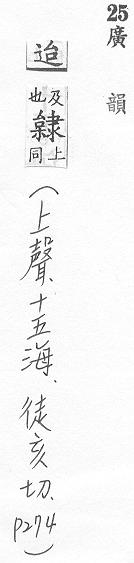 25廣韻
迨及也隸上同(上聲、十五海、徒亥切、p274)